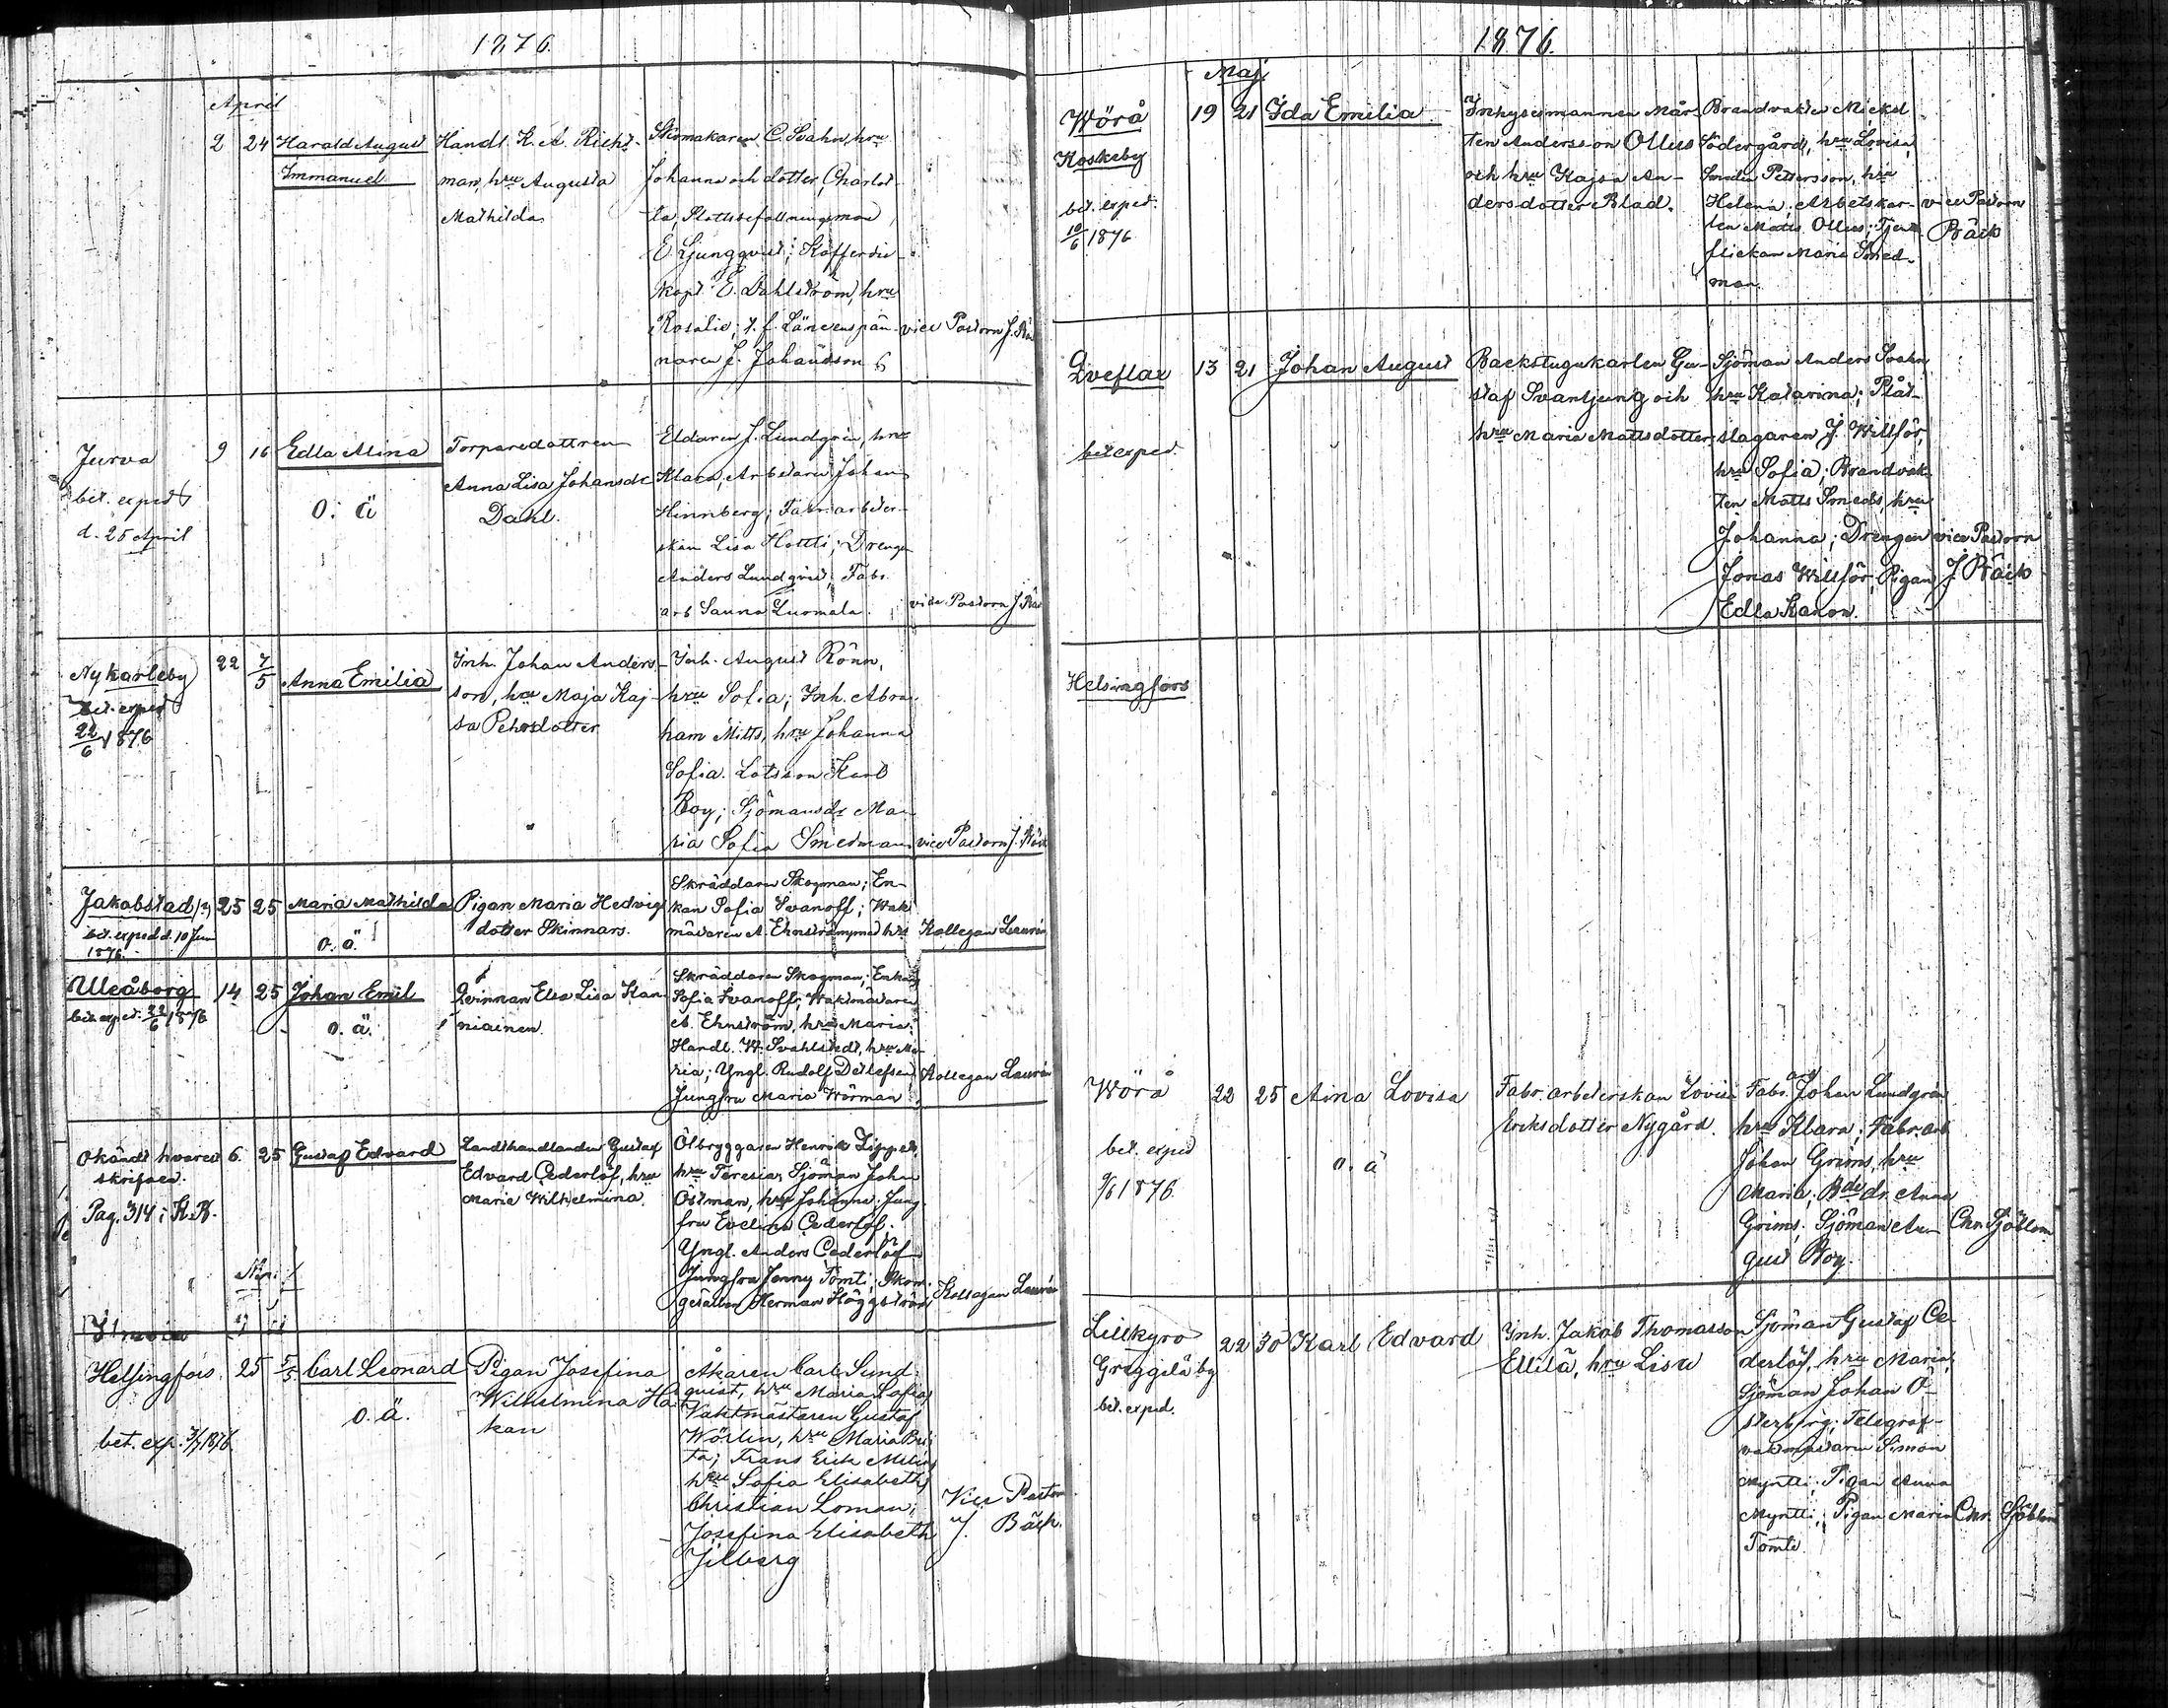 1876.
April
2 24 Harald August
Immanuel
Handl. K. A. Richt-
man, hru Augusta
Mathilda
Skomakaren C. Svahn, hru
Johanna och dotter Charlot
ta, Slottsbefallningsman
E. Ljungqvist; Kofferdie
kapt. E. Dahlström, hru
Rosalie; t. f. Länsenspän-
naren J. Johansson
vice Pastorn J.
Jurva
bet. exped
d. 25 April
9 16 Edla Alina
O. ä
Torparedottren
Anna Lisa Johansdr
Dahl.
Eldaren J. Lundgrén, hru
Klara, Arbetaren Johan
Hinnberg; Fabr. arbeter-
skan Lisa Hottti; Drengen
Anders Lundqvist; Fabr.
arb Sanna Luomala.
vice Pastorn J.
Nykarleby
bet. exped
22/6 1876
22 7/5 Anna Emilia
Inh. Johan Anders-
son, hru Maja Kaj-
sa Pehrsdotter
Inh. August Rönn,
hru Sofia; Inh. Abra
ham Mitts, hru Johanna
Sofia. Lotsson Karl
Boy; Sjömansdr Ma-
ria Sofia Smedman
vice Pastorn J.
Jakobstad
bet. exped d. 10 Jun
1876.
25 25 Maria Mathilda
o. ä.
Pigan Maria Hedvig
dotter Skinnars.
Skräddaren Skogman; En-
kan Sofia Ivanoff; Wakt
mästaren A. Ehnström med hru
Kollegan Laurén
Uleåborg
bet. exped. 22/6 1876
14 25 Johan Emil
o. ä.
Qvinnan Elsa Lisa Kan-
niainen.
Skräddaren Skogman; Enkan
Sofia Ivanoff; Waktmästaren
A. Ehnström, hru Maria;
Handl. W. Svahlstedt, hru Ma-
ria; Yngl. Rudolf Detlefsen,
Jungfru Maria Wörman
Kollegan Laurén
Okändt hvarest
skrifven.
Pag. 314 i K.B.
6. 25 Gustaf Edvard
Landthandlanden Gustaf
Edvard Cederlöf, hru
Maria Wilhelmina.
Ölbryggaren Henrik Lippert,
hru Teresia; Sjöman Johan
Östman, hru Johanna; Jung
fru Evelina Cederlöf.
Yngl. Anders Cederlöf
Jungfru Jenny Tömti; Skom.
gesällen Herman Häggström
Kollegan Laurén
Helsingfors
bet. exp. 3/7 1876
25 5/5 Carl Leonard
o. ä.
Pigan Josefina
Wilhelmina Ha
kan
Åkaren Carl Sund-
quist, hru Maria Sofia;
Vaktmästaren Gustaf
Wörlin, hru Maria Brit
ta; Frans Erik Melin,
hru Sofia Elisabeth;
Christian Loman;
Josefina Elisabeth
Jilberg
Vice Pastor
J. Bäck.
1876.
Maj
Wörå
Koskeby
bet. exped.
10/6 1876
19 21 Ida Emilia
Inhysesmannen Mår-
ten Andersson Ollus
och hru Kajsa An-
dersdotter Blad.
Brandvakten Mickel
Södergård, hru Lovisa,
Smeden Pettersson, hru
Helena; Arbetskar-
len Matts Ollus; Tjenst
flickan Maria Smed-
man.
vice Pastorn
Bäck
Qveflax
bet exped.
13 21 Johan August
Backstugukarlen Gu-
staf Svanljung och
hru Maria Mattsdotter
Sjöman Anders Svahn
hru Katarina; Plåt-
slagaren J. Willför,
hru Sofia; Brandvak-
ten Matts Smeds, hru
Johanna; Drengen
Jonas Willför, Pigan
Edla Kanon.
vice Pastorn
J. Bäck
Helsingfors
Wörå
bet. exped
9/6 1876.
22 25 Aina Lovisa
o. ä
Fabr. arbeterskan Lovisa
Eriksdotter Nygård.
Fabr. arb Johan Lundgrén
hru Klara; Fabr. arb
Johan Grims, hru
Maria; Bdedr. Anna
Grims; Sjöman Au-
gust Boy.
Chr. Sjöblom
Lillkyro
Greggilä by
bet. exped.
22 30 Karl Edvard
Inh. Jakob Thomasson
Ellilä, hru Lisa
Sjöman Gustaf Ce-
derlöf, hru Maria,
Sjöman Johan Ö-
sterberg; Telegraf-
vaktmästaren Simon
Myntti; Pigan Anna
Myntti; Pigan Maria
Tömte
Chr. Sjöblom